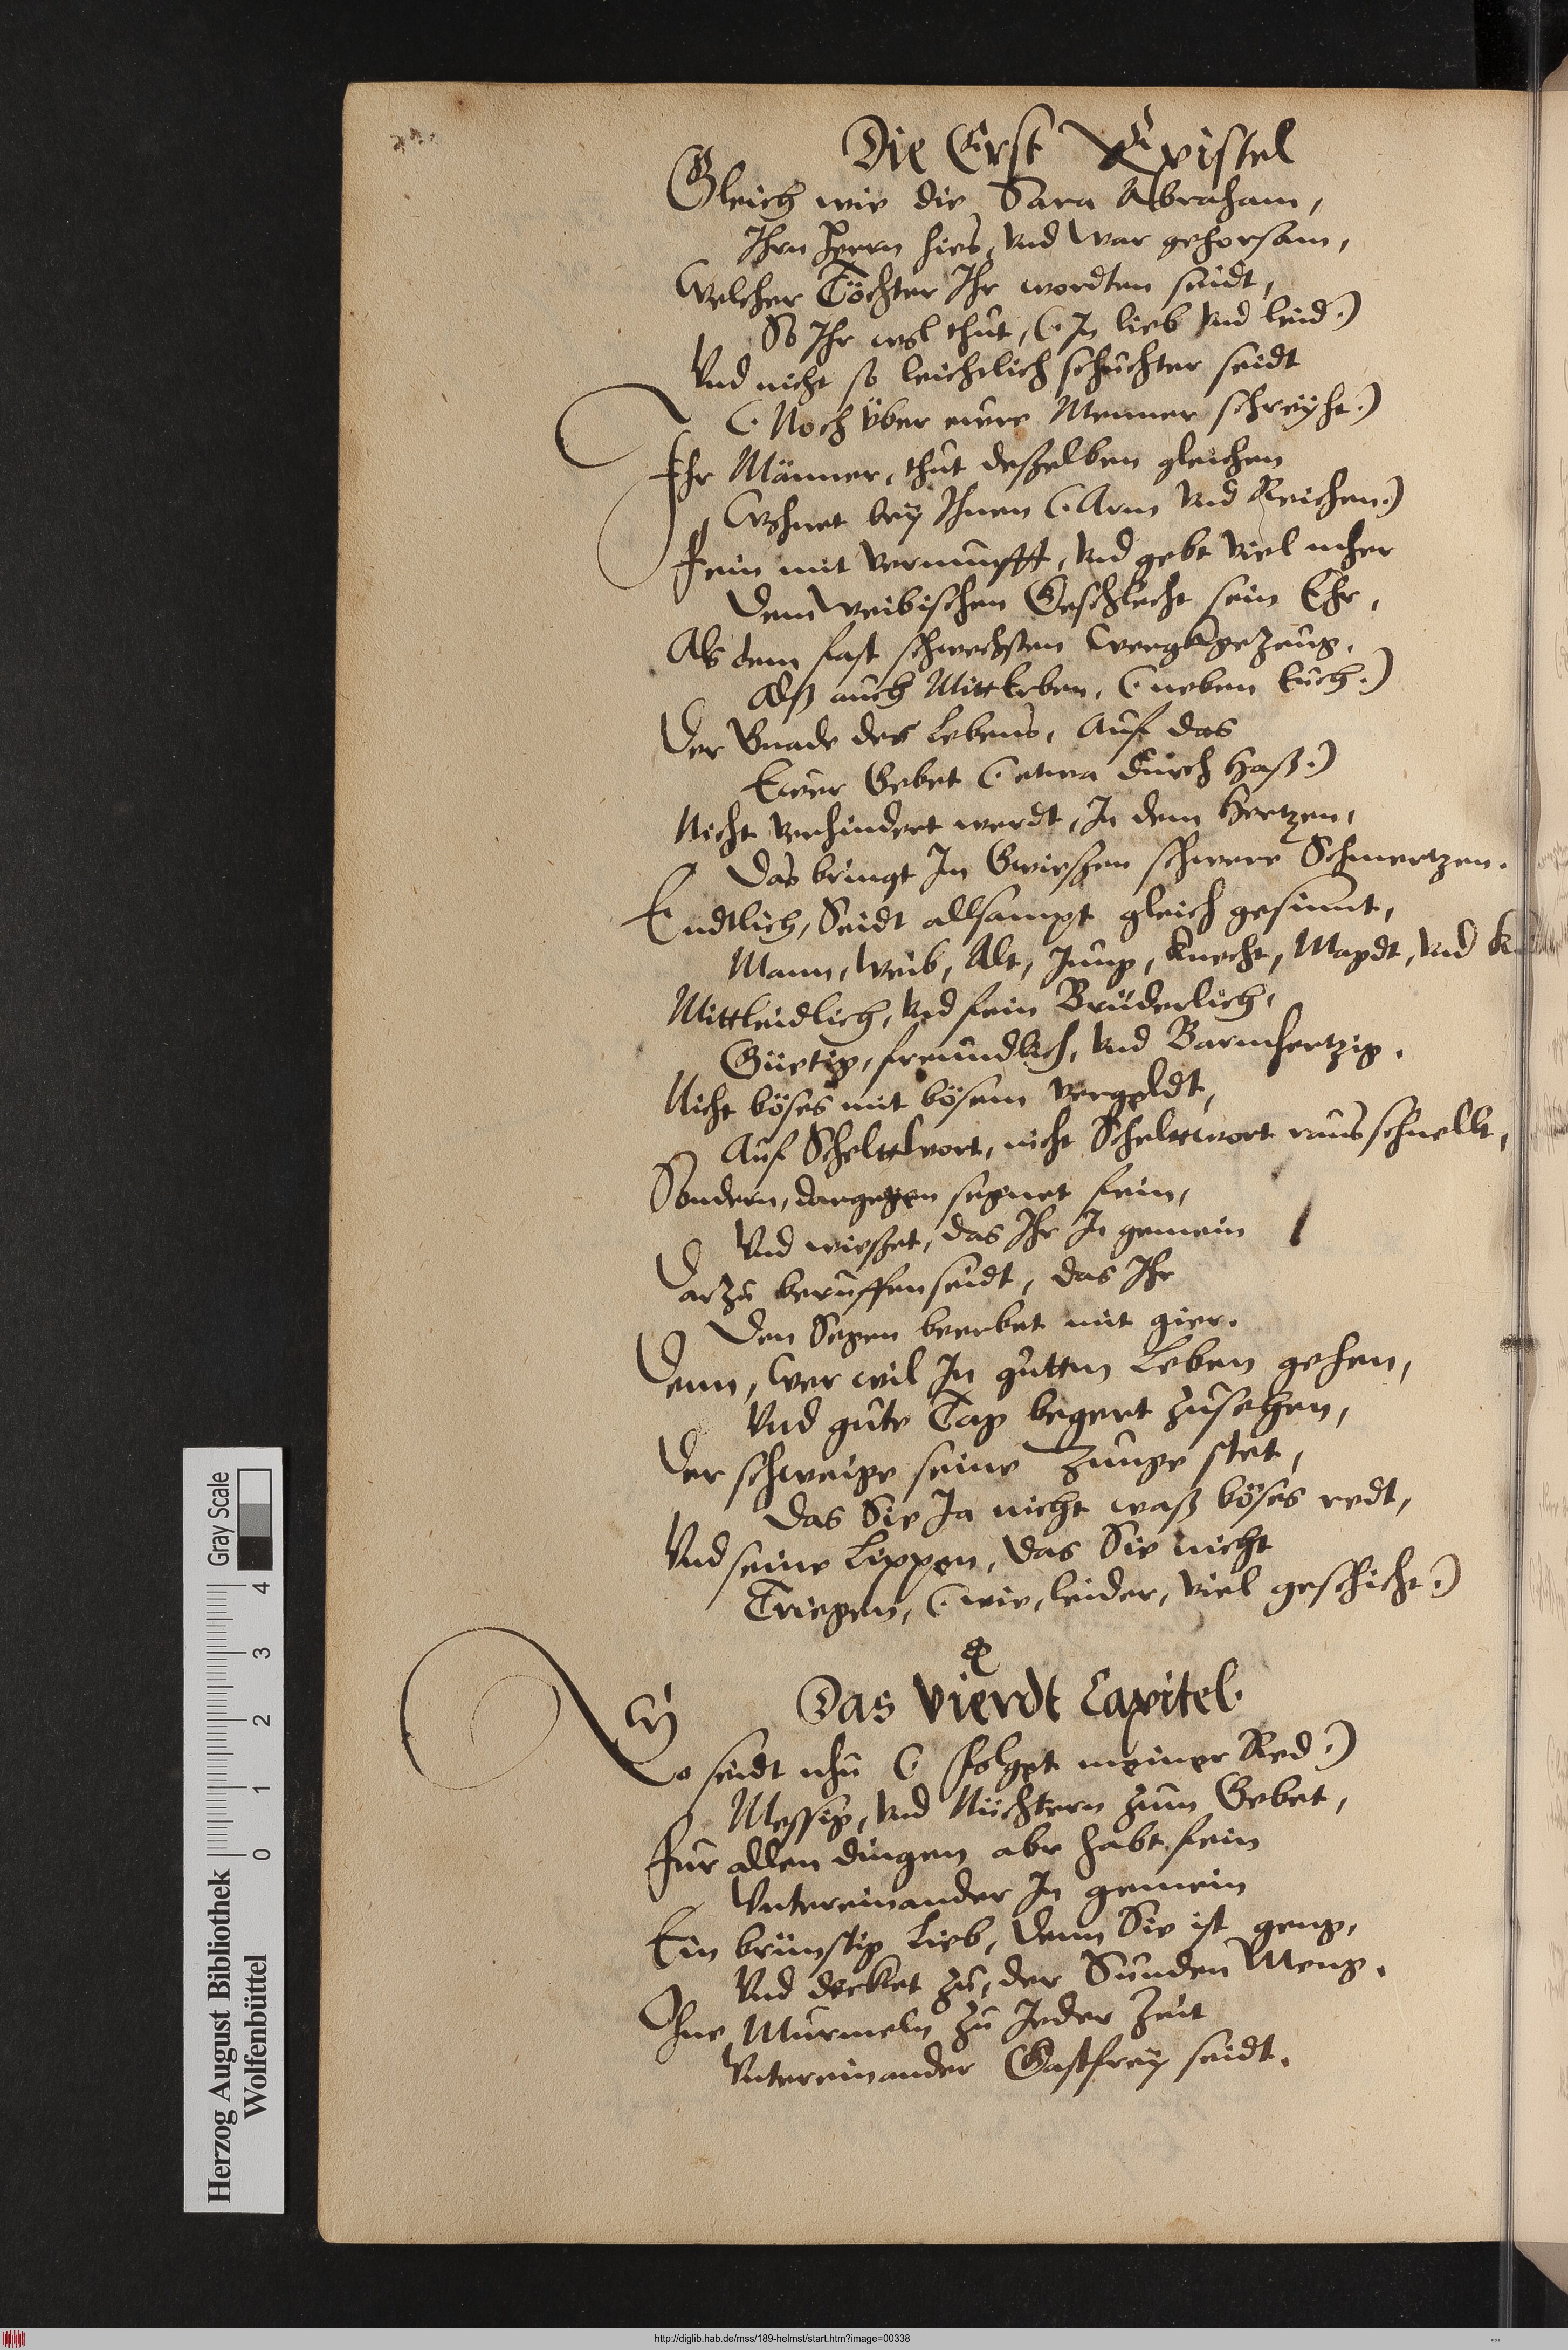 Die Erst Epistel
Gleich wie die Sara Abraham,
Ihrn Herrn hies, vnd war gehorsam,
Welcher Töchter Ihr wordten seidt,
So Ihr wol thut, (: In lieb vnd leid :)
Vnd nicht so leichtlich schuchter seidt
(: Noch vber ewre Menner schreyhet :)
Ihr Männer, thut deßelben gleichen
Wohnet bey Ihnen (: Arm vnd Reichen :)
Fein mit vernunfft, vnd gebt viel mher
Dem Weibischen Geschlecht sein Ehr,
Als dem fast schwechsten Wergkgezeug,
Alß auch MittErben, (: neben Euch :)
Der Gnade des Lebens, Auf das
Ewer Gebet (: etwa durch Haß :)
Nicht verhindert werdt, In dem Hertzen,
Das bringt Im Gwießen schwere Schmertzen.
Endtlich, Seidt allsampt gleich gesinnt,
Mann, Weib, Alt, Jung, Knecht, Magdt, vnd
Mittleidlich, vnd fein Brüderlich,
Güetig, freundlich, vnd Barmhertzig.
Nicht böses mit bösem vergeldt,
Auf Scheltwort, nicht Scheltwort raus schnellt,
Sondern, dargegen segnet fein,
Vnd wießet, das Ihr In gemein
Darzu beruffen seidt, das Ihr
Den Segen beerbet mit gier.
Denn, Wer wil In gutten Leben gehen,
Vnd gute Tag begert zusehen,
Der schweige seine Zunge stet,
Das Sie Ja nicht waß böses redt,
Vnd seine Lippen, das Sie nicht
Triegen, (: wie, leider, viel geschicht :)
Das Vierdt Capitel.
So seidt nhu (: folget meiner Red :)
Messig, vnd Nüchtern zum Gebet,
Fur allen dingen abr habt fein
Vntereinander In gemein
Ein brünstig Lieb, denn Sie ist geng,
Vnd decket zu, der Sunden Meng.
Ohne Murmeln zu Jeder Zeit
Vntereinander Gastfrey seidt.
Herzog August Bibliothek
Wolfenbüttel
0 1 2 3 4
Gray Scale
http://diglib.hab.de/mss/189-helmst/start.htm?image=00338